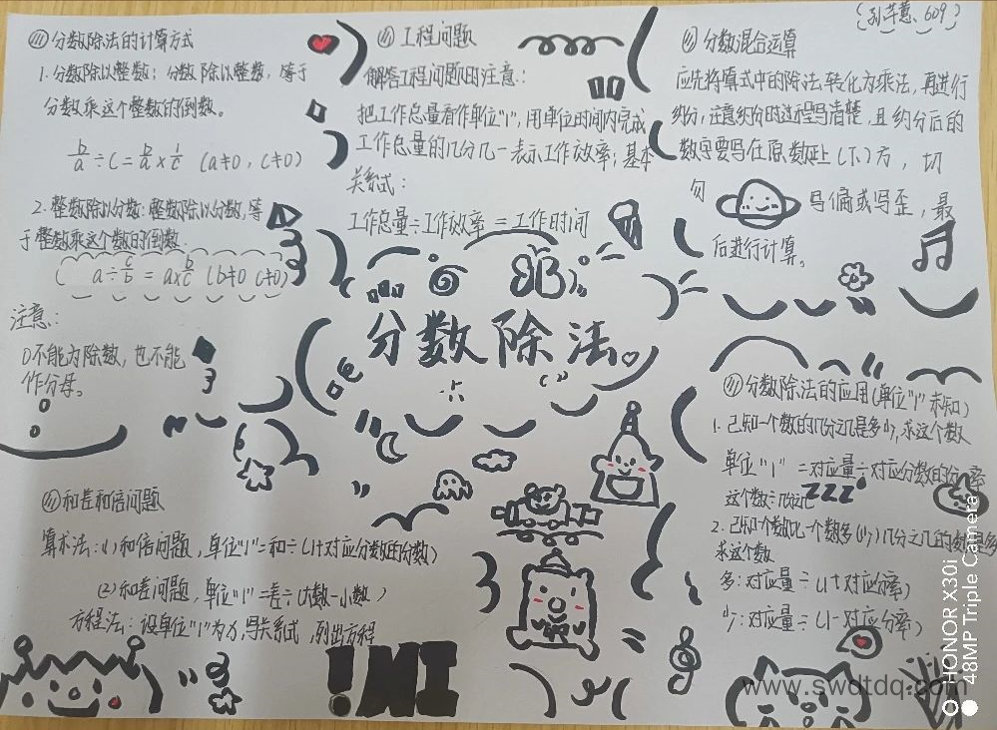 609
分数除法的计算方式
1. 分数除以整数：分数除以整数，等于
分数乘这个整数的倒数。
b/a÷c=b/a×1/c (a≠0, c≠0)
2. 整数除以分数：整数除以分数，等
于整数乘这个数的倒数.
( a÷c/b = a×b/c (b≠0 c≠0)
注意：
0不能为除数，也不能
作分母。
工程问题
解答工程问题时注意：
把工作总量看作单位"1"，用单位时间内完成
工作总量的几分几一表示工作效率；基本
关系式：
工作总量÷工作效率 = 工作时间
分数混合运算
应先将算式中的除法转化为乘法，再进行
约分，注意约分时过程写清楚，且约分后的
数字要写在原数正上(下)方，切
勿 写偏或写歪，最
后进行计算。
分数除法
分数除法的应用(单位"1"未知)
1. 已知一个数的几分之几是多少，求这个数
单位"1" =对应量÷对应分数的分率
这个数÷几分之几
ZZZ
2. 已知一个数比一个数多(少)几分之几的数是多
求这个数
多：对应量÷(1+对应分率)
少：对应量÷(1-对应分率)
和差和倍问题
算术法：(1) 和倍问题，单位"1"=和÷(1+对应分数的分数)
(2) 和差问题，单位"1"=差÷(大数-小数)
方程法：设单位"1"为x，写关系式，列出方程
www.swdtdq.com
HONOR X30i
48MP Triple Camera